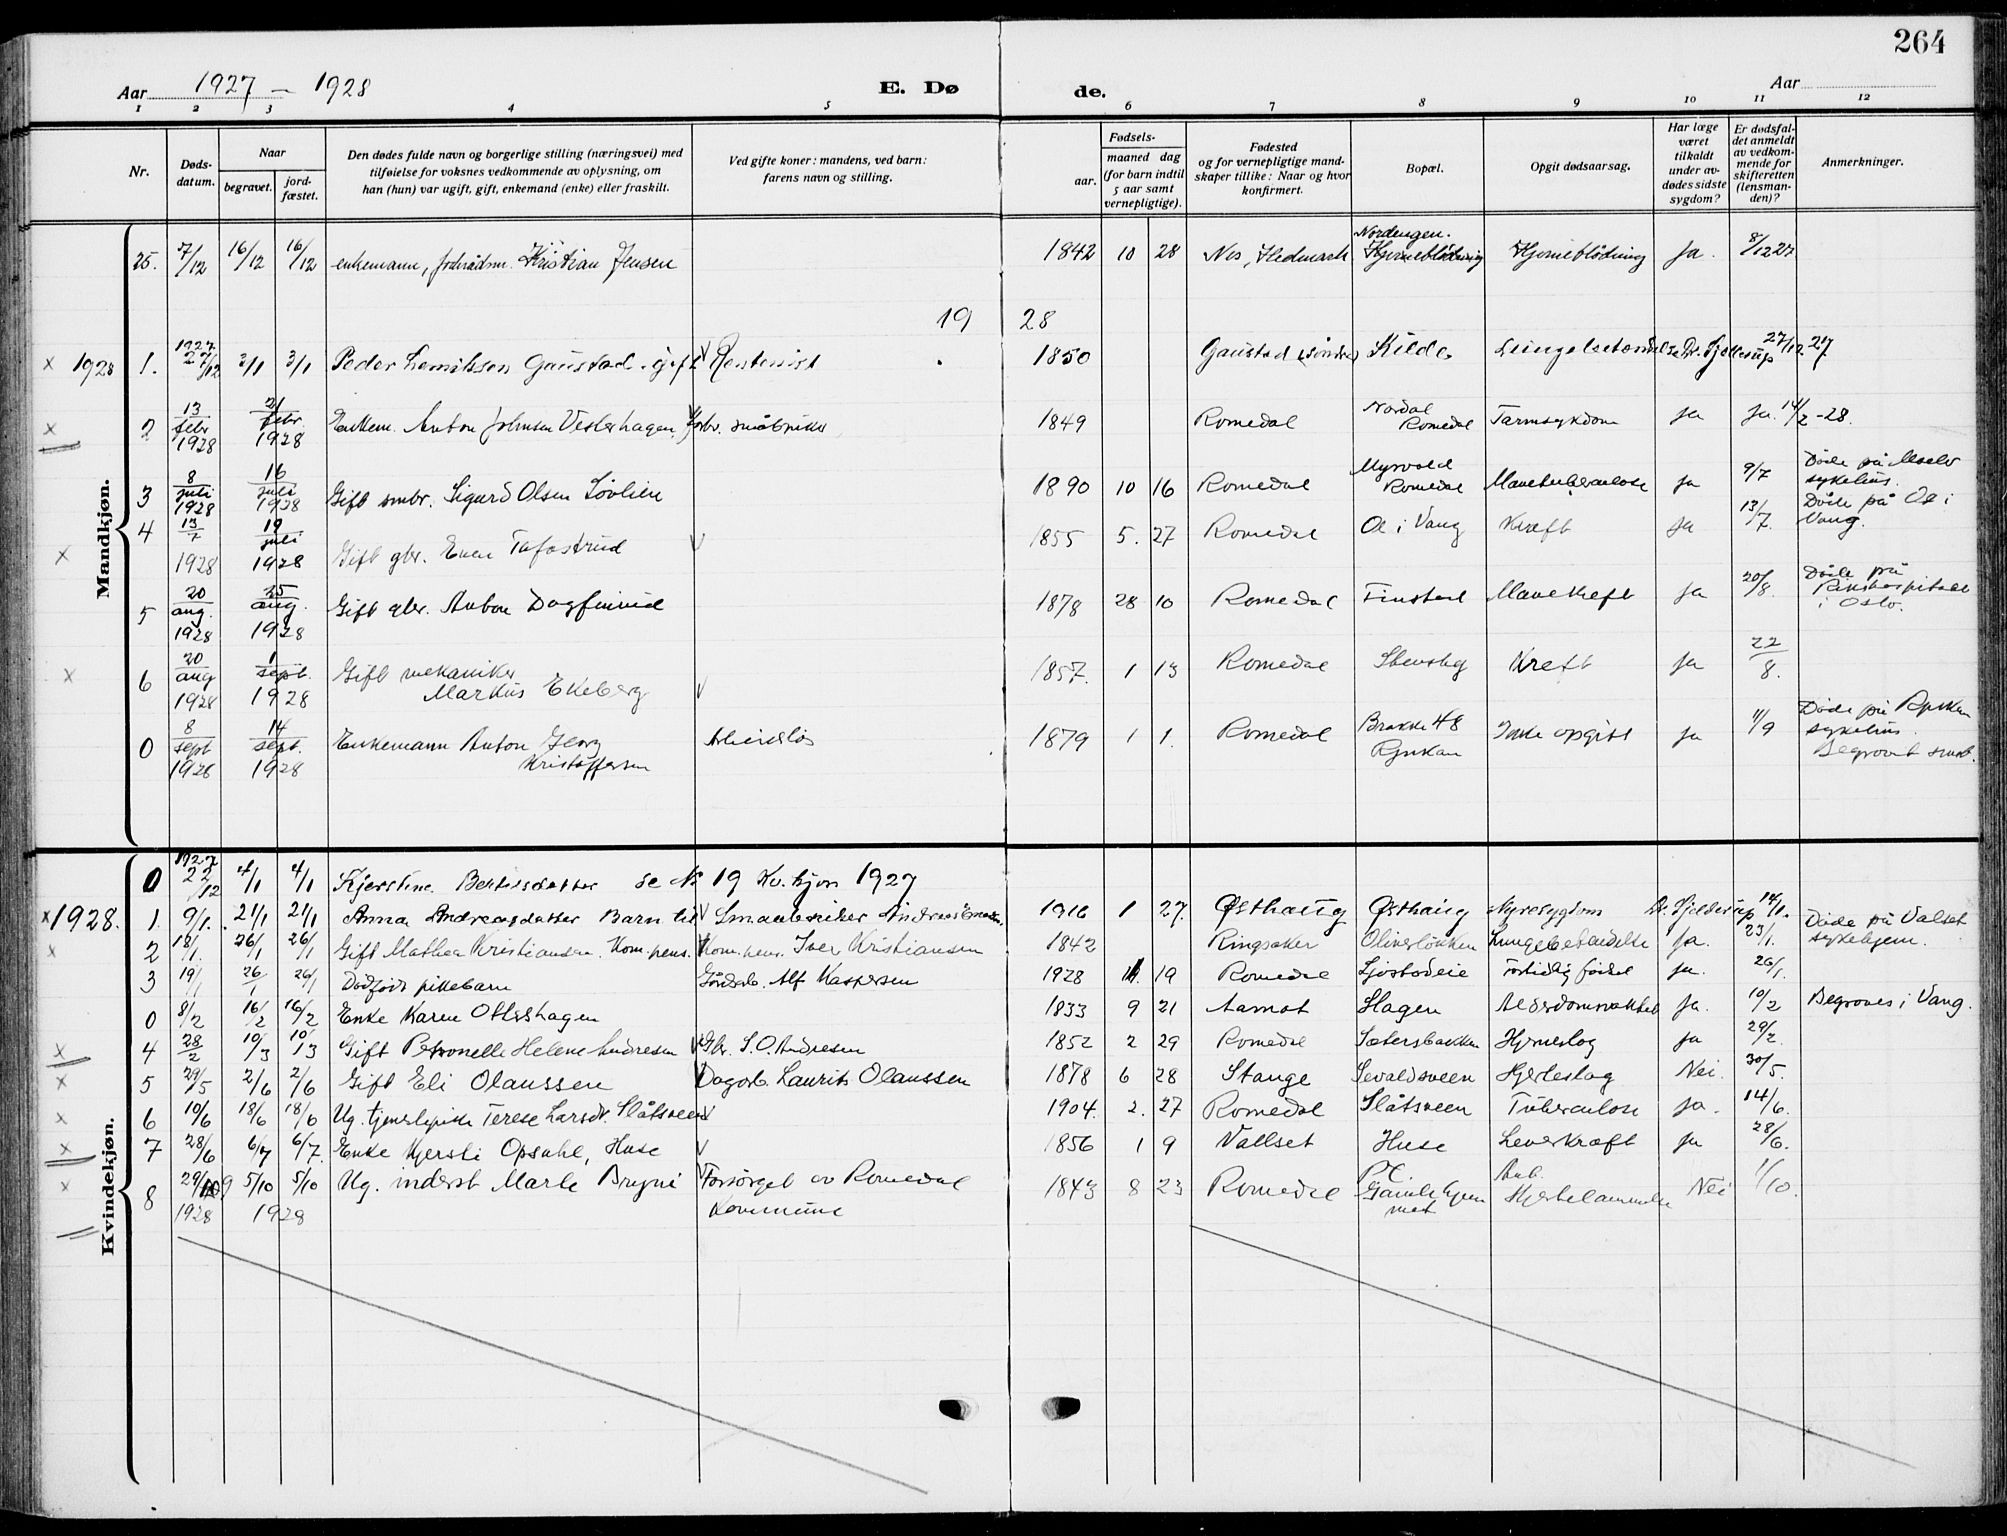 264
Aar 1927 - 1928 E. Dø de. Aar
1 2 3 4 5 6 7 8 9 10 11 12
Nr.
Døds-
datum.
Naar
begravet.
jord-
fæstet.
Den dødes fulde navn og borgerlige stilling (næringsvei) med
tilføielse for voksnes vedkommende av oplysning, om
han (hun) var ugift, gift, enkemand (enke) eller fraskilt.
Ved gifte koner: mandens, ved barn:
farens navn og stilling.
Fødsels-
aar.
maaned dag
(for barn indtil
5 aar samt
vernepligtige).
Fødested
og for vernepligtige mand-
skaper tillike: Naar og hvor
konfirmert.
Bopæl.
Opgit dødsaarsag.
Har læge
været
tilkaldt
under av-
dødes sidste
sygdom?
Er dødsfal-
det anmeldt
av vedkom-
mende for
skifteretten
(lensman-
den)?
Anmerkninger.
Mandkjøn.
25. 7/12 16/12 16/12 enkemann, Kristian Jensen 1842 10 28 Nes, Hedmark Nordengen. Hjerneblødning Hjerneblødning Ja. 8/12 27
19 28
x 1928 1. 1927 27/12 3/1 3/1 Peder Gaustad. gift Rentenist 1850 Gaustad (søndre) Kilde Dr. 27/12 27
x 2 13 febr 1928 21 febr. 1928 Enkem. Anton Johnsen Vesterhagen, småbruker 1849 Romedal Nordal Romedal Tarmsykdom ja ja. 14/2 -28.
3 8 juli 1928 16 juli 1928 Gift smbr. Sigurd Olsen Løvlien 1890 10 16 Romedal Myrvold Romedal Mavetuberculose ja 9/7 Døde på sykehus.
x 4 13/7 1928 19 juli 1928 Gift gbr. Even Tofastrud V 1855 5. 27 Romedal i Vang Kræft ja 13/7. Døde på i Vang.
5 20 aug. 1928 25 aug. 1928 Gift gbr. Anton Dagfinrud 1878 28 10 Romedal Finstad Mavekreft ja 20/8. Døde på Rikshospitalet i Oslo.
x 6 20 aug 1928 1 sept. 1928 Gift mekaniker Markus Ekeberg V 1857. 1 13 Romedal Stensby Kreft ja 22/8.
0 8 sept 1928 14 sept. 1928 Enkemann Anton Georg Kristoffersen Arbeidsløs 1879 1 1. Romedal Brakke 48 Rjukan Ikke opgitt ja 11/9 Døde på Rjukan sykehus. Begravet
Kvindekjøn.
0 1927 22/12 4/1 4/1 Kjerstine Bertilsdatter se No 19 Kv.kjøn 1927
x 1928. 1. 9/1. 21/1 21/1 Anna Andreasdatter Barn til V Småbruker 1916 1 27. Østhaug Østhaug Nyresygdom Dr. 14/1. Døde på Valset sykehjem.
x 2 18/1. 26/1 26/1 Gift Mathea Kristiansen. Kom.pens. V Kom.pens. Iver Kristiansen 1842 Ringsaker Oliverløkken Lungebetendelse ja. 23/1.
3 19/1 26/1 26/1 Dødfødt pikebarn Gårdsarb. Alf Kaspersen 1928 1. 19 Romedal Sjøstadeie Fortidlig fødsel ja. 26/1.
0 8/2 16/2 16/2 Enke Karen Ottershagen 1833 9 21 Aamot Hagen Alderdomsvakhet ja. 10/2 Begraves i Vang.
x 4 28/2 10/3 10/3 Gift Petronelle Helene Andresen V Gbr. S. O. Andresen 1852 2 29 Romedal Sætersbakken Hjerneslag ja 29/2.
x 5 29/5 2/6 2/6 Gift Eli Olaussen V Dagarb. Laurits Olaussen 1878 6 28 Stange Sevaldsveen Hjerteslag Nei 30/5.
x 6 10/6 18/6 18/6 Ug. tjenestepike Terese Larsdt. Slåtsveen V 1904. 2. 27 Romedal Slåtsveen Tuberculose ja. 14/6.
x 7 28/6 6/7 6/7. Enke Kjersti Opsahl, Huse V 1856 1 9 Vallset Huse Leverkræft ja 28/6.
x 8 29/9 1928 5/10 5/10 1928 Ug. inderst Marte Bryni V Forsørget av Romedal Kommune 1843 8 23 Romedal Gamlehjemmet Hjertelammelse Nei 1/10.